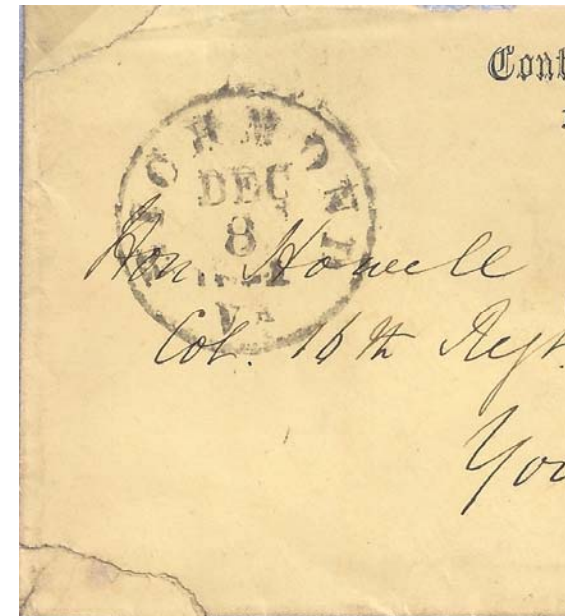 Cont
RICHMOND
DEC
8
VA
Hon. Howell
Col. 16th Regt.
You